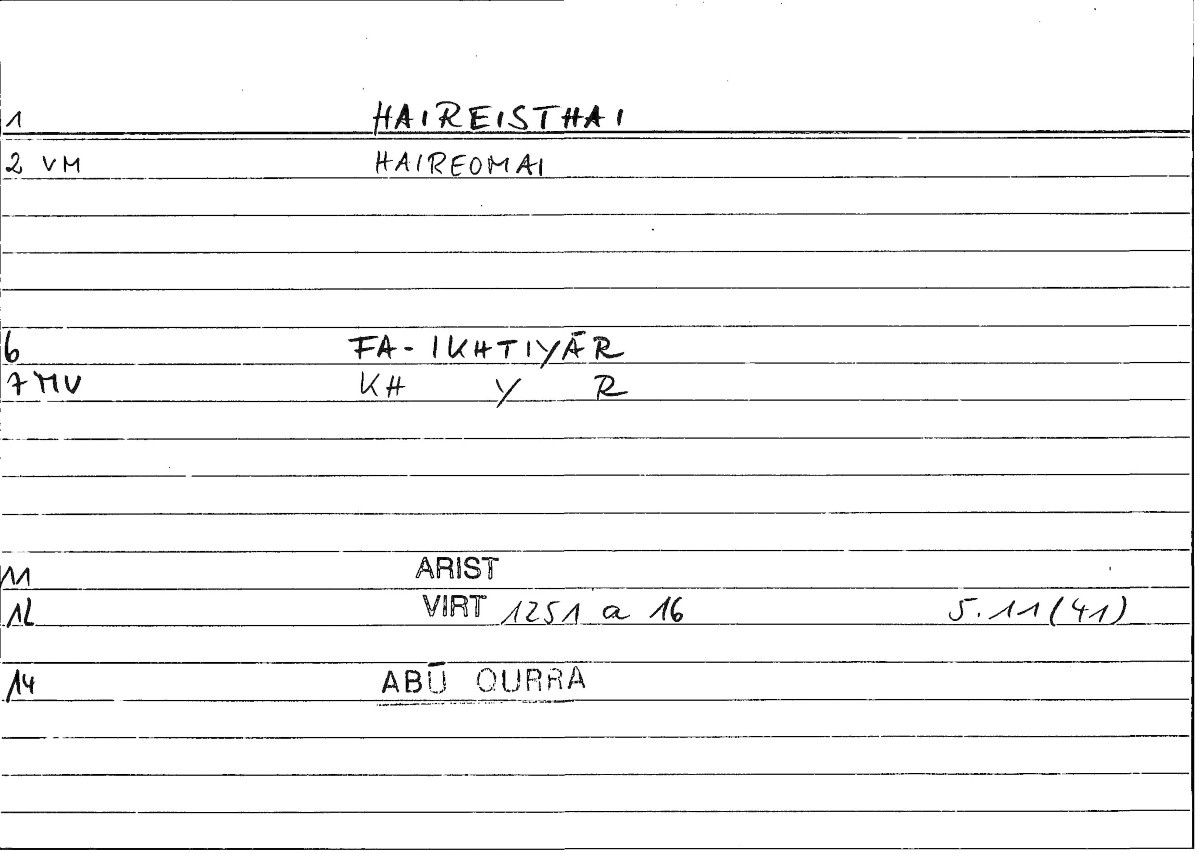 1 HAIREISTHAI
2 VM HAIREOMAI
6 FA-IKHTIYĀR
7 MV KH Y R
11 ARIST
12 VIRT 1251 a 16 5.11(41)
14 ABŪ QURRA